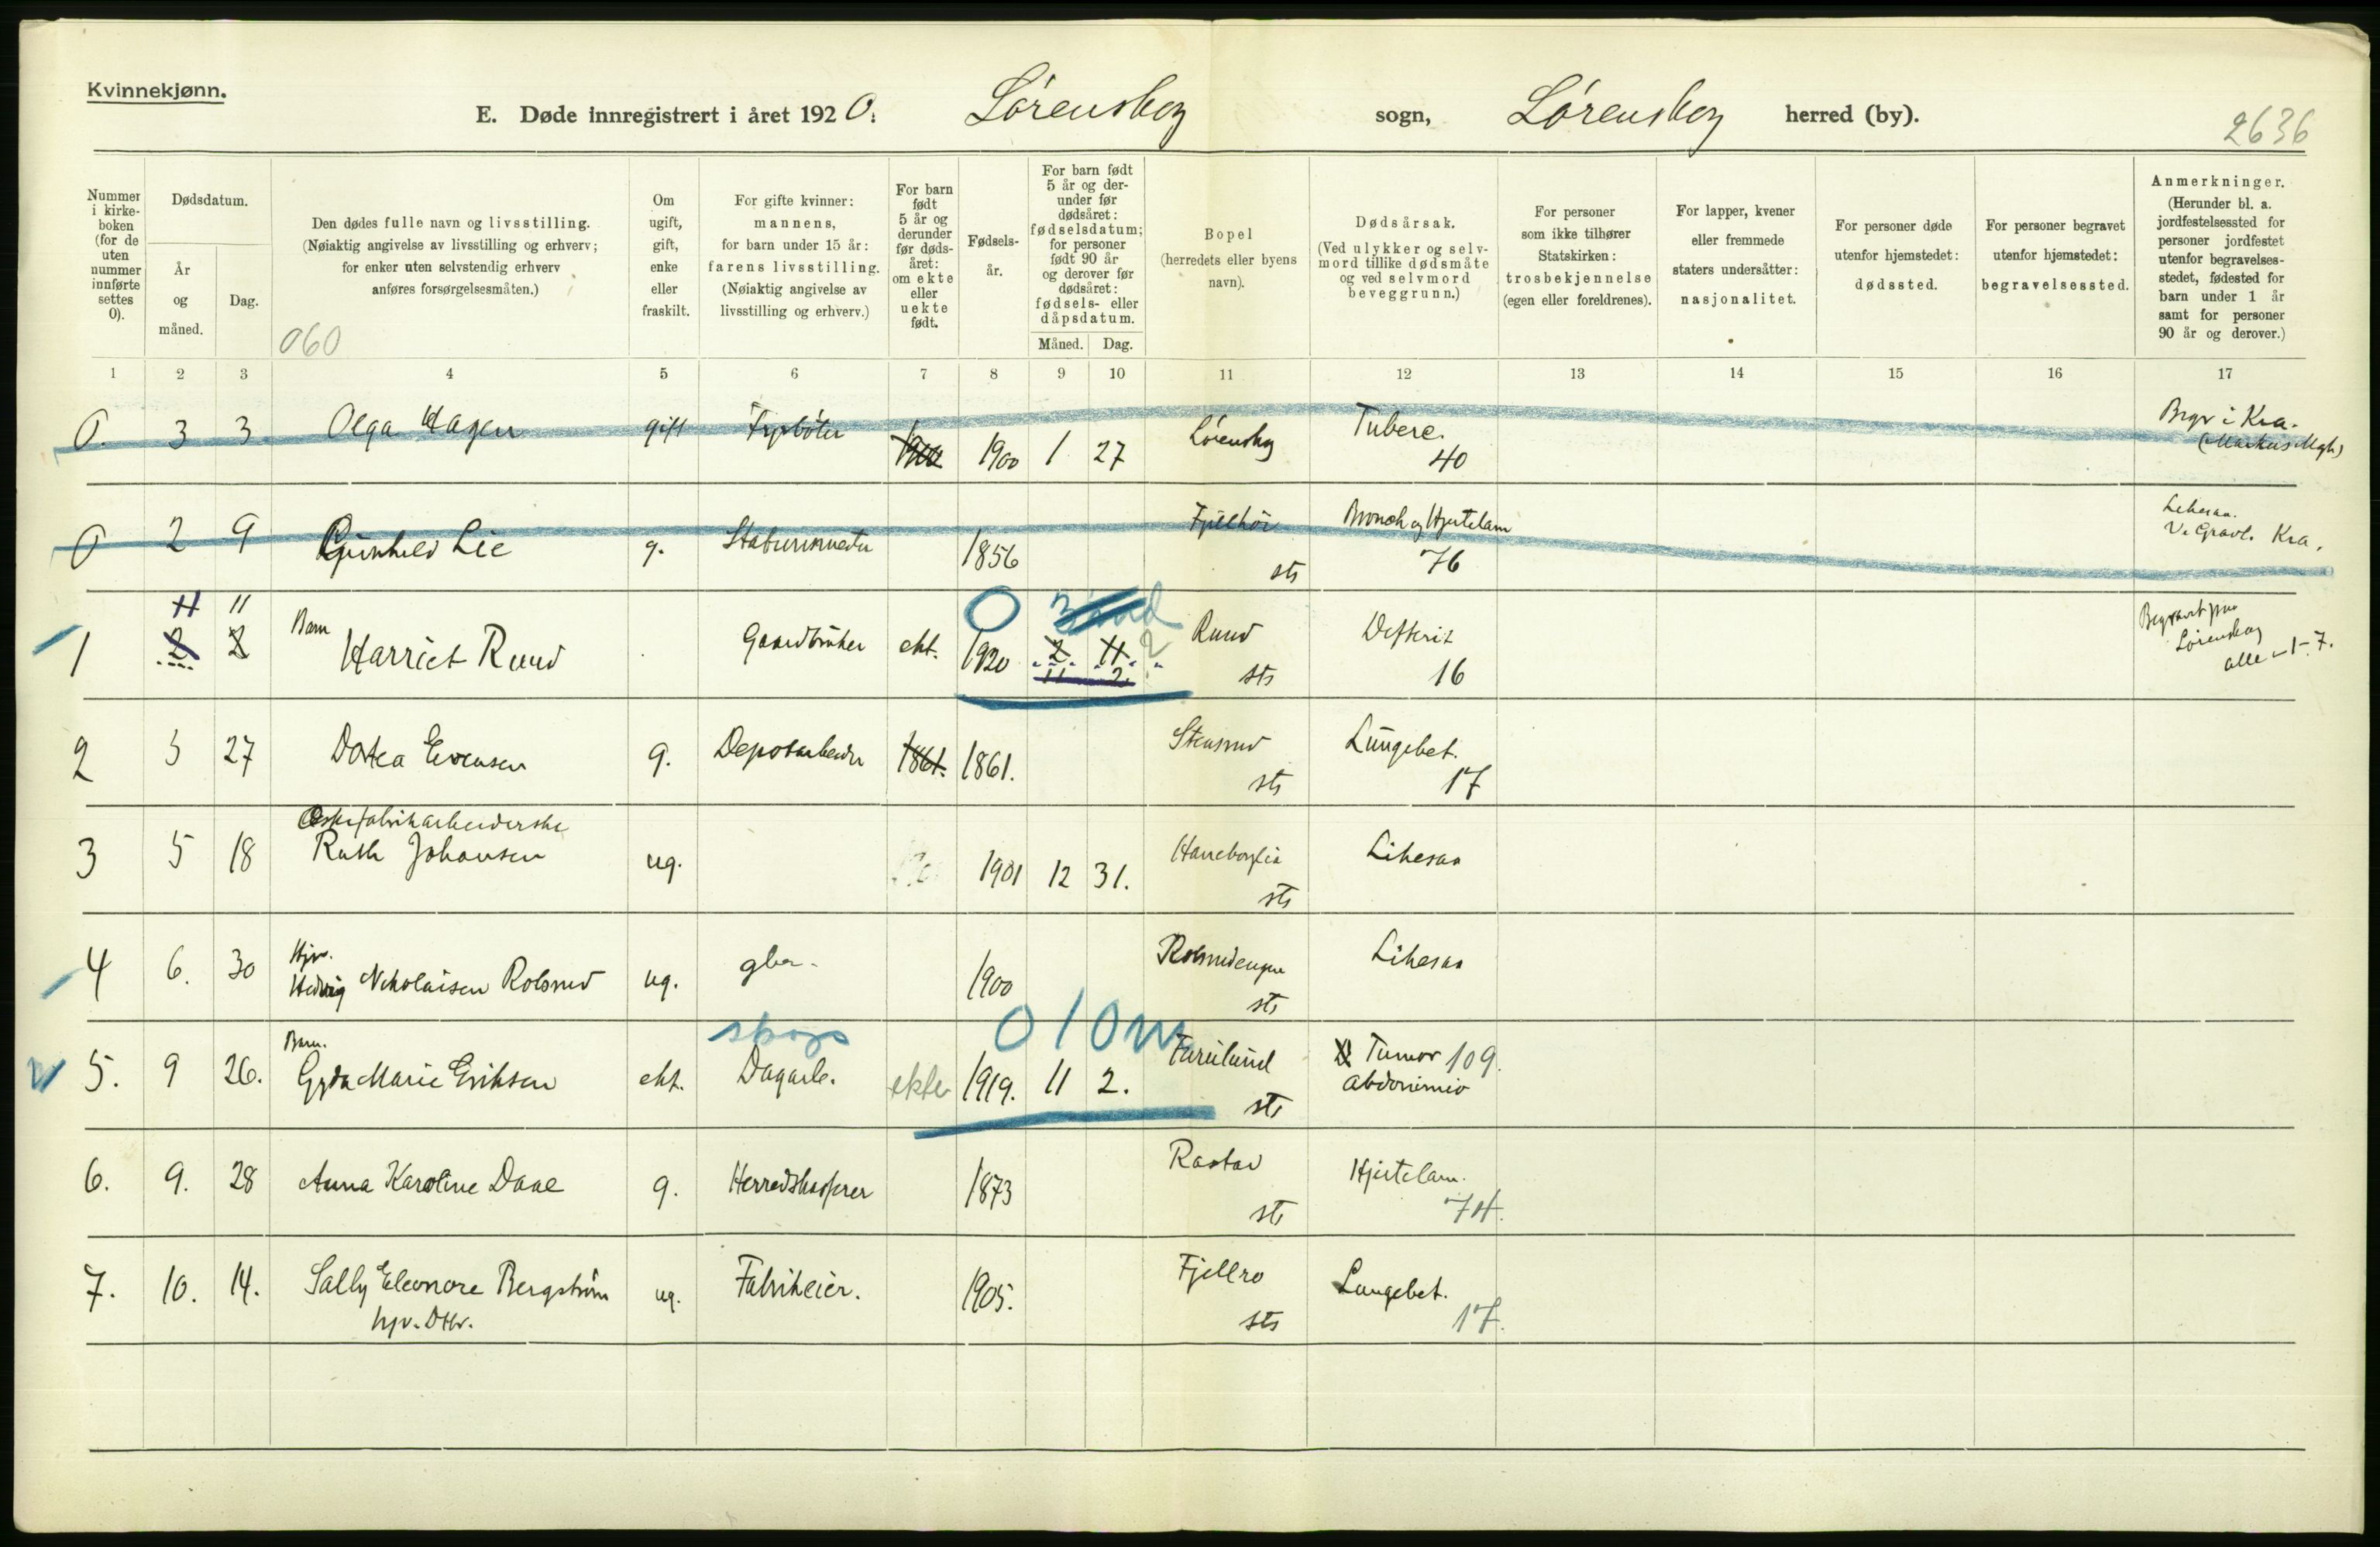 Kvinnekjønn.
E. Døde innregistrert i året 1920. Lørenskog sogn, Lørenskog herred (by).
2636
Nummer i kirke-boken (for de uten nummer innførte settes 0).
Dødsdatum.
År og måned.
Dag.
Den dødes fulle navn og livsstilling.
(Nøiaktig angivelse av livsstilling og erhverv;
for enker uten selvstendig erhverv
anføres forsørgelsesmåten.)
060
Om ugift, gift, enke eller fraskilt.
For gifte kvinner: mannens, for barn under 15 år: farens livsstilling. (Nøiaktig angivelse av livsstilling og erhverv.)
For barn født 5 år og derunder før døds-året: om ekte eller uekte født.
Fødsels-år.
For barn født 5 år og der-under før dødsåret: fødselsdatum; for personer født 90 år og derover før dødsåret: fødsels- eller dåpsdatum.
Måned. Dag.
Bopel (herredets eller byens navn).
Dødsårsak. (Ved ulykker og selv-mord tillike dødsmåte og ved selvmord beveggrunn.)
For personer som ikke tilhører Statskirken: trosbekjennelse (egen eller foreldrenes).
For lapper, kvener eller fremmede staters undersåtter: nasjonalitet.
For personer døde utenfor hjemstedet: dødssted.
For personer begravet utenfor hjemstedet: begravelsessted.
Anmerkninger. (Herunder bl. a. jordfestelsessted for personer jordfestet utenfor begravelses-stedet, fødested for barn under 1 år samt for personer 90 år og derover.)
1 2 3 4 5 6 7 8 9 10 11 12 13 14 15 16 17
0. 3 3 Olga Hagen gift 1900 1 27 Lørenskog Tuberc. 40 Begr i Kra.
0 2 9 Gunhild Lie g. 1856 sts Bronch og Hjertelam 76 V. Gravl. Kra.
1 11 Barn Harriet Ruud Gaardbruker ekt. 1920 Ruud sts Difterit 16 Begravet paa Lørenskog alle 1-7.
2 3 27 Dortea Evensen g. Depotarbeider 1861. 1861. Stensrud sts Lungebet. 17
3 5 18 Æskefabrikarbeiderske
Ruth Johansen ug. 1901 12 31. Haneborglia sts Likesaa
4 6. 30 Hjv.
Hedvig Nikolaisen Robsrud ug. gbr. 1900 Robsrudengen sts Likesaa
5. 9 26. Barn.
Gyda Marie Eriksen ekt. skogs Dagarb. ekte 1919. 11 2. 0 10 m Furulund sts Tumor 109. abdominis
6. 9. 28 Anna Karoline Daae g. Herredskasserer 1873 Rastad sts Hjertelam. 74.
7. 10. 14. Sally Eleonore Bergstrøm ug. Fabrikeier. 1905. Fjellro sts Lungebet. 17.
hjv. Dttr.